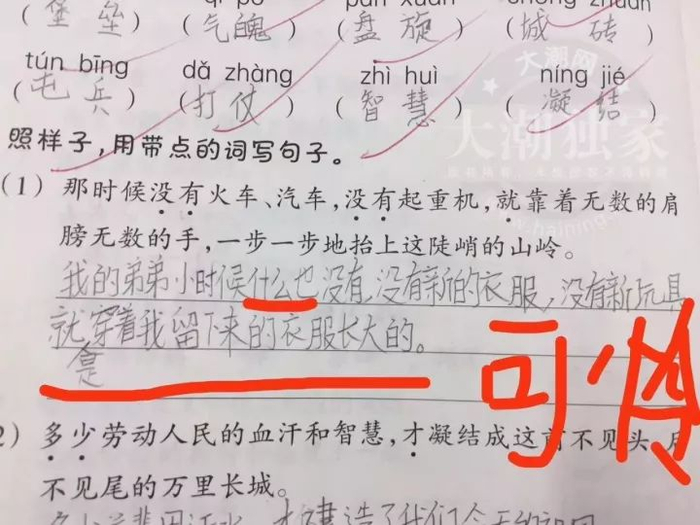 (堡 垒) (气 魄) (盘 旋) (城 砖)
tún bīng dǎ zhàng zhì huì níng jié
(屯 兵) (打 仗) (智 慧) (凝 结)
大潮网
大潮独家
照样子,用带点的词写句子。
(1) 那时候没有火车、汽车,没有起重机,就靠着无数的肩
膀无数的手,一步一步地抬上这陡峭的山岭。
我的弟弟小时候什么也没有,没有新的衣服,没有新玩具
就是穿着我留下来的衣服长大的。
可怜
2) 多少劳动人民的血汗和智慧,才凝结成这前不见头,后
不见尾的万里长城。